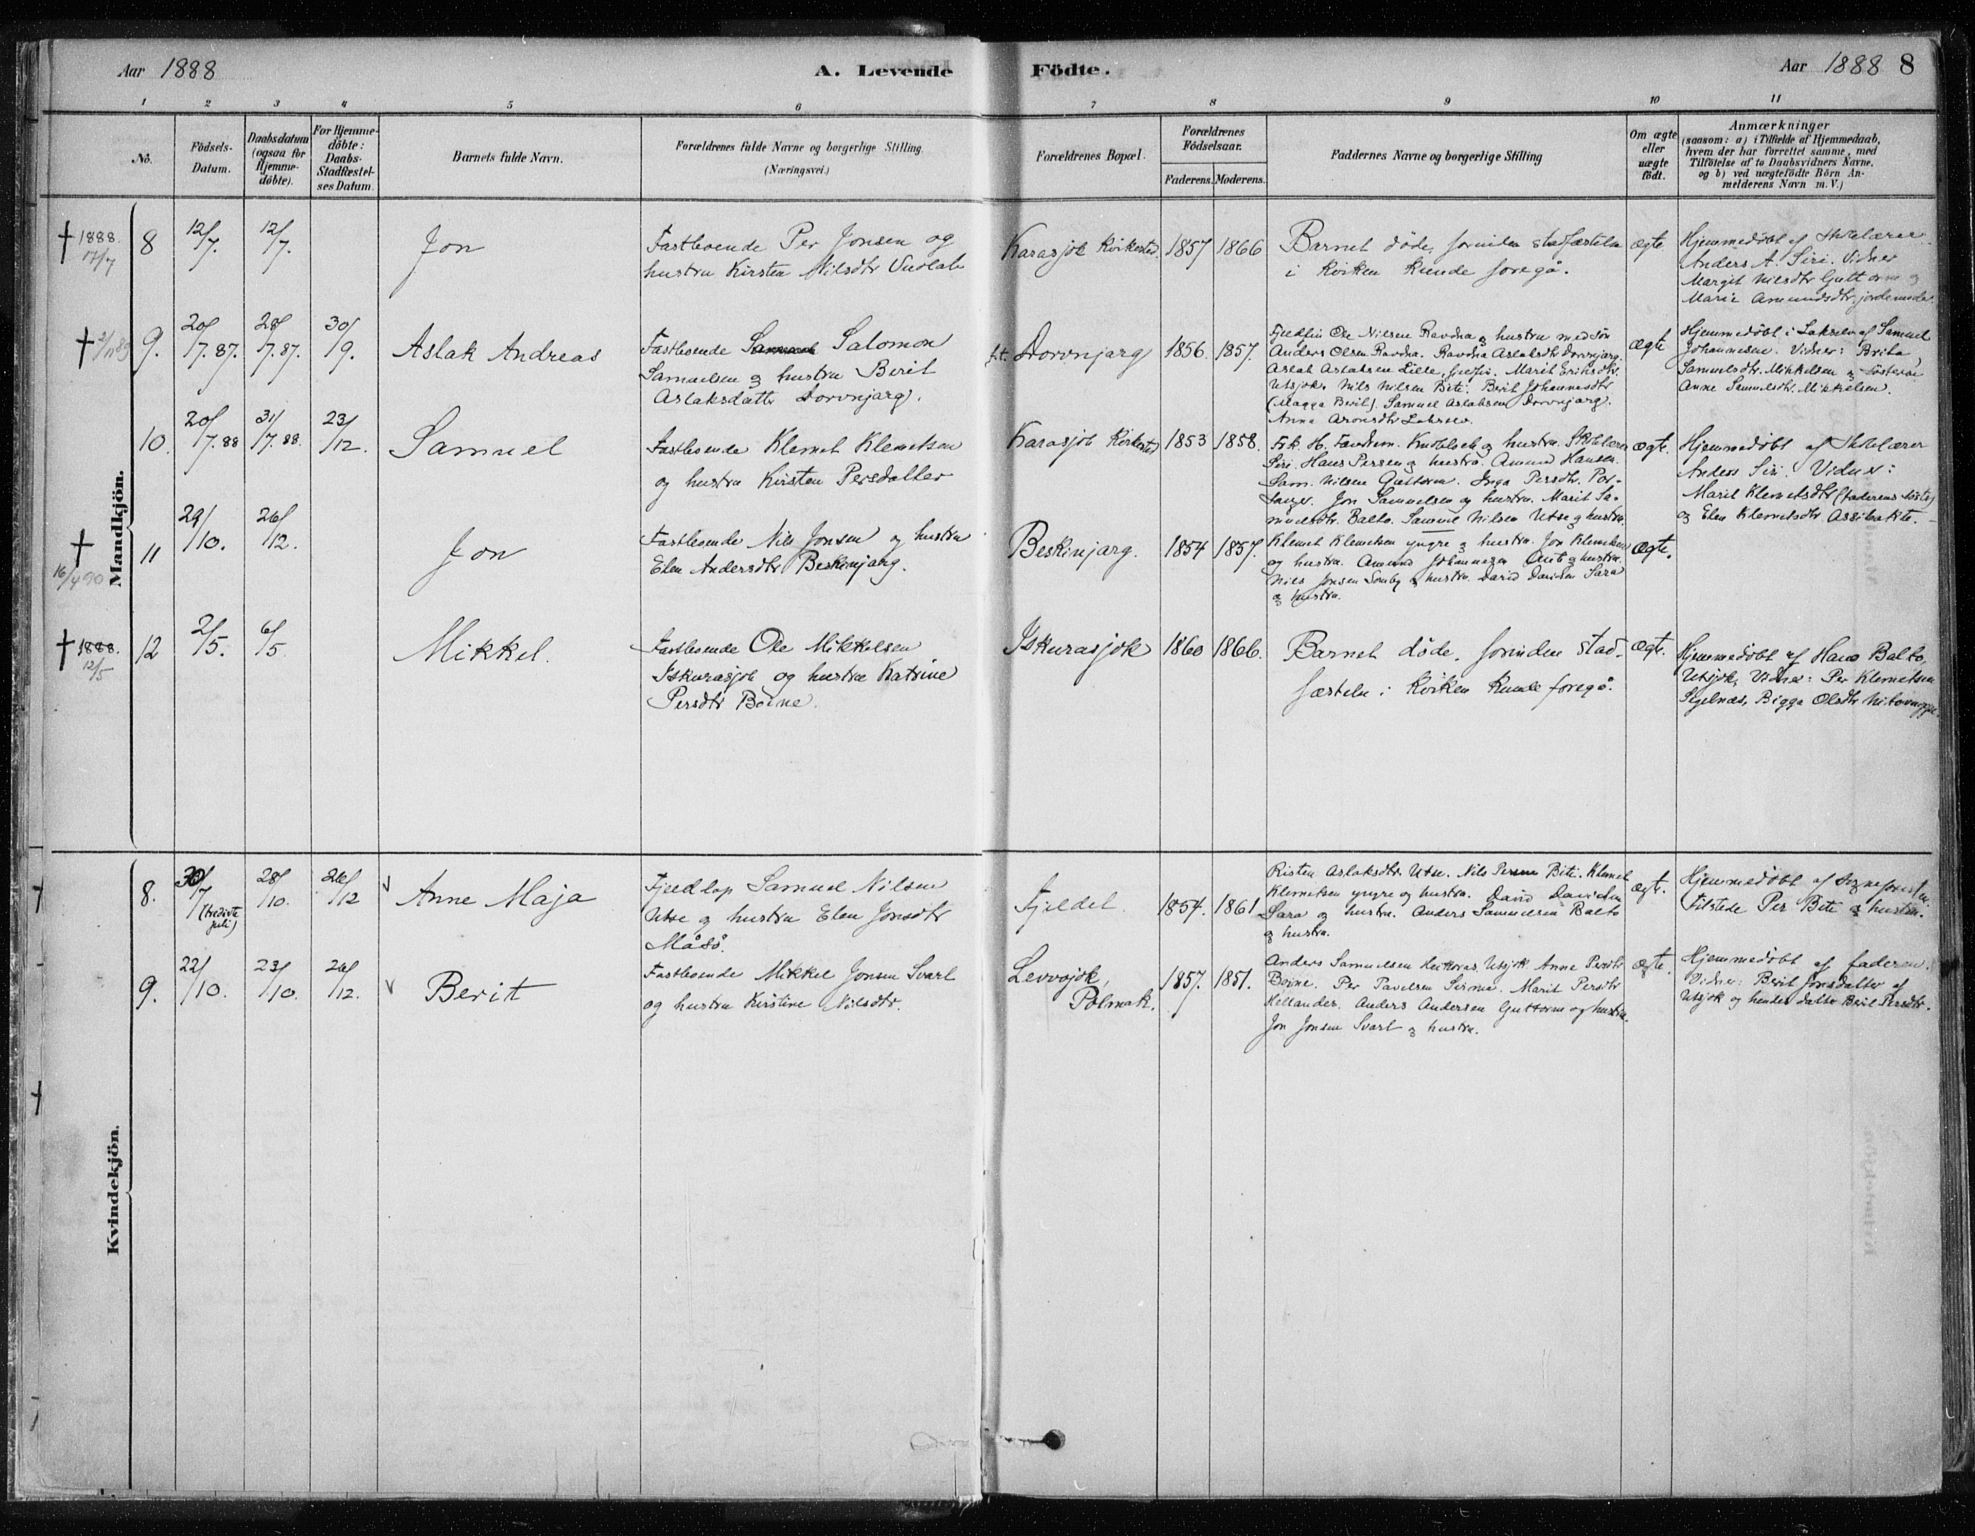 Aar 1888
A. Levende Födte.
Aar 1888 8
1 2 3 4 5 6 7 8 9 10 11
No.
Födsels-
Datum.
Daabsdatum
(ogsaa for
Hjemme-
döbte).
For Hjemme-
döbte:
Daabs-
Stadfæstel-
ses Datum.
Barnets fulde Navn.
Forældrenes fulde Navne og borgerlige Stilling
(Næringsvei.)
Forældrenes Bopæl.
Forældrenes
Födselsaar.
Faderens. Moderens.
Faddernes Navne og borgerlige Stilling
Om ægte
eller
uægte
födt.
Anmærkninger
(saasom: a) i Tilfælde af Hjemmedaab,
hvem der har forrettet samme, med
Tilföielse af to Daabsvidners Navne,
og b) ved uægtefödte Börn An-
melderens Navn m. V.)
Mandkjön.
† 1888.
17/7
8
12/7.
12/7.
Jon
Fastboende Per Jonsen og
hustru Kirsten Nilsdtr Vuolab
Karasjok Kirkested
1857
1866
Barnet døde, forinden stadfæstelse
i kirken kunde foregå.
ægte
Hjemmedøbt af Skolelærer
Anders A. Siri. Vidner
Margit Nilsdtr Guttorm og
Marie Amundsdtr, jordemoder.
†
9.
20/7.87.
28/7.87.
30/9.
Aslak Andreas
Fastboende Salomon
Samuelsen og hustru Berit
Aslaksdatter Dorvnjarg.
f.t. Dorvnjarg
1856.
1857.
Fjeldfin Ole Nilsen Ravdna og hustru med søn
Anders Olsen Ravdna. Ravdna Aslaksdtr Dorvnjarg.
Aslak Aslaksen Lille, Marit Eriksdtr.
Utsjok. Nils Nilsen Biti. Berit Johannesdtr
(Magga Berit). Samuel Aslaksen Dorvnjarg.
Anna Aronsdtr Lakselv.
ægte
Hjemmedøbt i Lakselv af Samuel
Johannesen. Vidner: Brita
Samuelsdtr. Mikkelsen og
Anne Samuelsdtr. Mikkelsen.
10.
20/7.88
31/7.88.
23/12.
Samuel
Fastboende Klemet Klemetsen
og hustru Kirsten Persdatter
Karasjok Kirkested
1853
1858.
Frk. H. Fandrem. og hustru. Skolelærer
Siri. Hans Persen og hustru. Amund Hansen.
Sam. Nilsen Guttorm. Inga Persdtr. Por-
sanger. Jon Samuelsen og hustru. Marit Sa-
muelsdtr. Balto. Samuel Nilsen Utse og hustru.
ægte.
Hjemmedøbt af Skolelærer
Anders Siri. Vidner:
Marit Klemetsdtr (faderens søster)
og Elen Klemetsdtr Assebakte.
†
16/4 90
11
29/10.
26/12.
Jon
Fastboende Nils Jonsen og hustru
Elen Andersdtr Beskinjarg.
Beskinjarg.
1854
1857.
Klemet Klemetsen yngre og hustru. Jon Klemetsen
og hustru. Amund Johannesen og hustru
Nils Jonsen Somby og hustru. David Davidsen Sara
og hustru.
ægte.
† 1888.
12/5
12
2/5.
6/5
Mikkel.
Fastboende Ole Mikkelsen
Iskurasjok og hustru Katrine
Persdtr Boine.
Iskurasjok
1860
1866.
Barnet døde, forinden stad-
fæstelse i kirken kunde foregå.
ægte.
Hjemmedøbt af Hans Balto,
Utsjok, Vidner: Per Klemetsen
Bigga Olsdtr
Kvindekjön.
8.
30/7
(tredivte
juli)
28/10.
26/12
Anne Maja
Fjeldlap Samuel Nilsen
Utse og hustru Elen Jonsdtr
Måsø.
Fjeldet
1854.
1861.
Risten Aslaksdtr Utse. Nils Persen Biti. Klemet
Klemetsen yngre og hustru. David Davidsen
Sara og hustru. Anders Samuelsen Balto
og hustru.
ægte.
Hjemmedøbt af Sognepresten.
Tilstede Per Biti og hustru.
9.
22/10.
23/10.
26/12.
Berit
Fastboende Mikkel Jonsen Svart
og hustru Kirstine Nilsdtr.
Levvojok,
Polmak.
1857.
1851.
Anders Samuelsen Utsjok Anne Persdtr
Boine. Per Pavelsen Sirma. Marit Persdtr
Hellander. Anders Andersen Guttorm og hustru.
Jon Jonsen Svart og hustru.
ægte.
Hjemmedøbt af faderen.
Vidner: Berit Jonsdatter af
Utsjok og hendes datter Berit Persdtr.